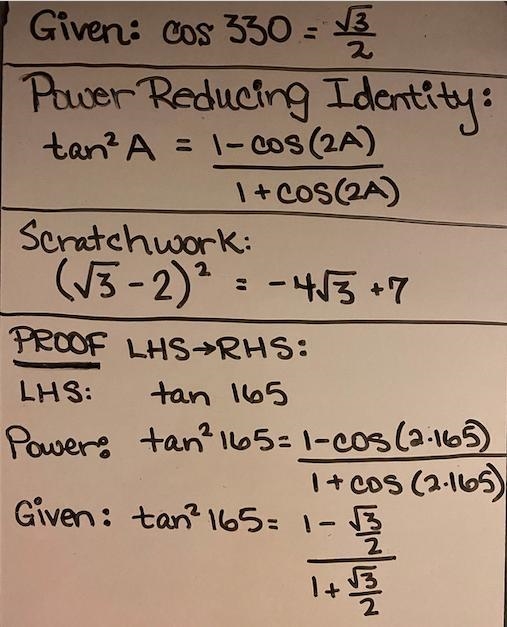 Given: cos 330 = √3/2
Power Reducing Identity:
tan² A = 1 - cos(2A) / 1 + cos(2A)
Scratchwork:
(√3 - 2)² = -4√3 + 7
PROOF LHS→RHS:
LHS: tan 165
Power: tan² 165 = 1 - cos(2·165) / 1 + cos(2·165)
Given: tan² 165 = 1 - √3/2 / 1 + √3/2